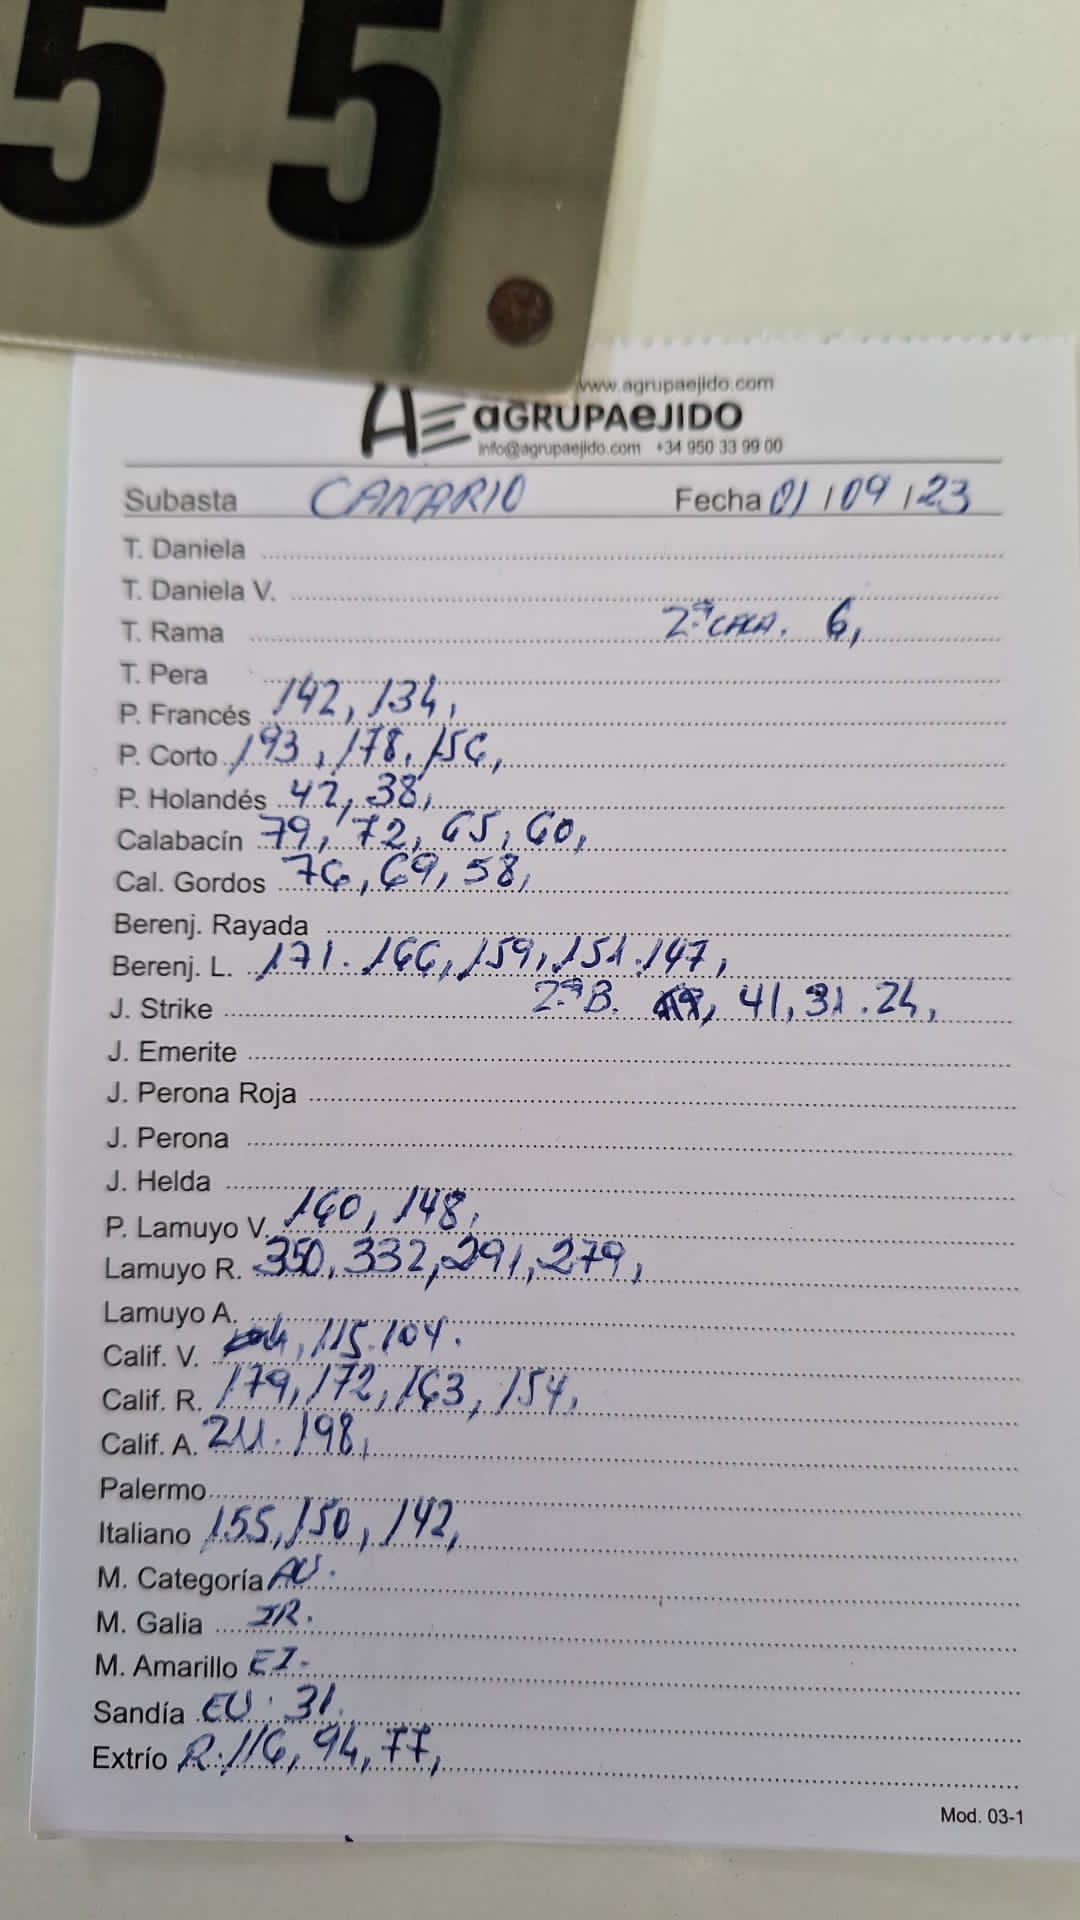 55
www.agrupaejido.com
AE aGRUPAeJIDO
info@agrupaejido.com +34 950 33 99 00
Subasta CANARIO Fecha 01/09/23
T. Daniela
T. Daniela V.
T. Rama 2ª 6,
T. Pera
P. Francés 142, 134,
P. Corto 193, 178. 156,
P. Holandés 42, 38,
Calabacín 79, 72, 65, 60,
Cal. Gordos 76, 69, 58,
Berenj. Rayada
Berenj. L. 171. 166, 159, 151. 147,
J. Strike 2ª B. 41, 31. 24,
J. Emerite
J. Perona Roja
J. Perona
J. Helda
P. Lamuyo V. 160, 148,
Lamuyo R. 350, 332, 291, 279,
Lamuyo A.
Calif. V. 115. 104.
Calif. R. 179, 172, 163, 154,
Calif. A. 211. 198,
Palermo
Italiano 155, 150, 142,
M. Categoría AU.
M. Galia IR.
M. Amarillo EI.
Sandía EU. 31.
Extrío R. 116, 94, 77,
Mod. 03-1